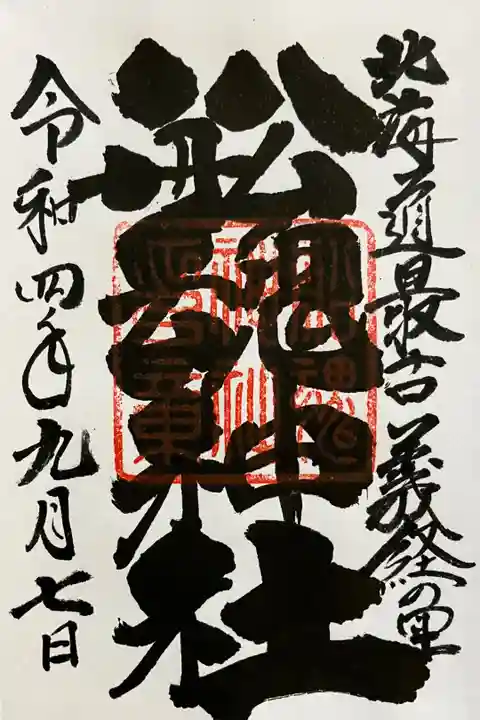 北海道最古義経の里
舩魂神社
令和四年九月七日